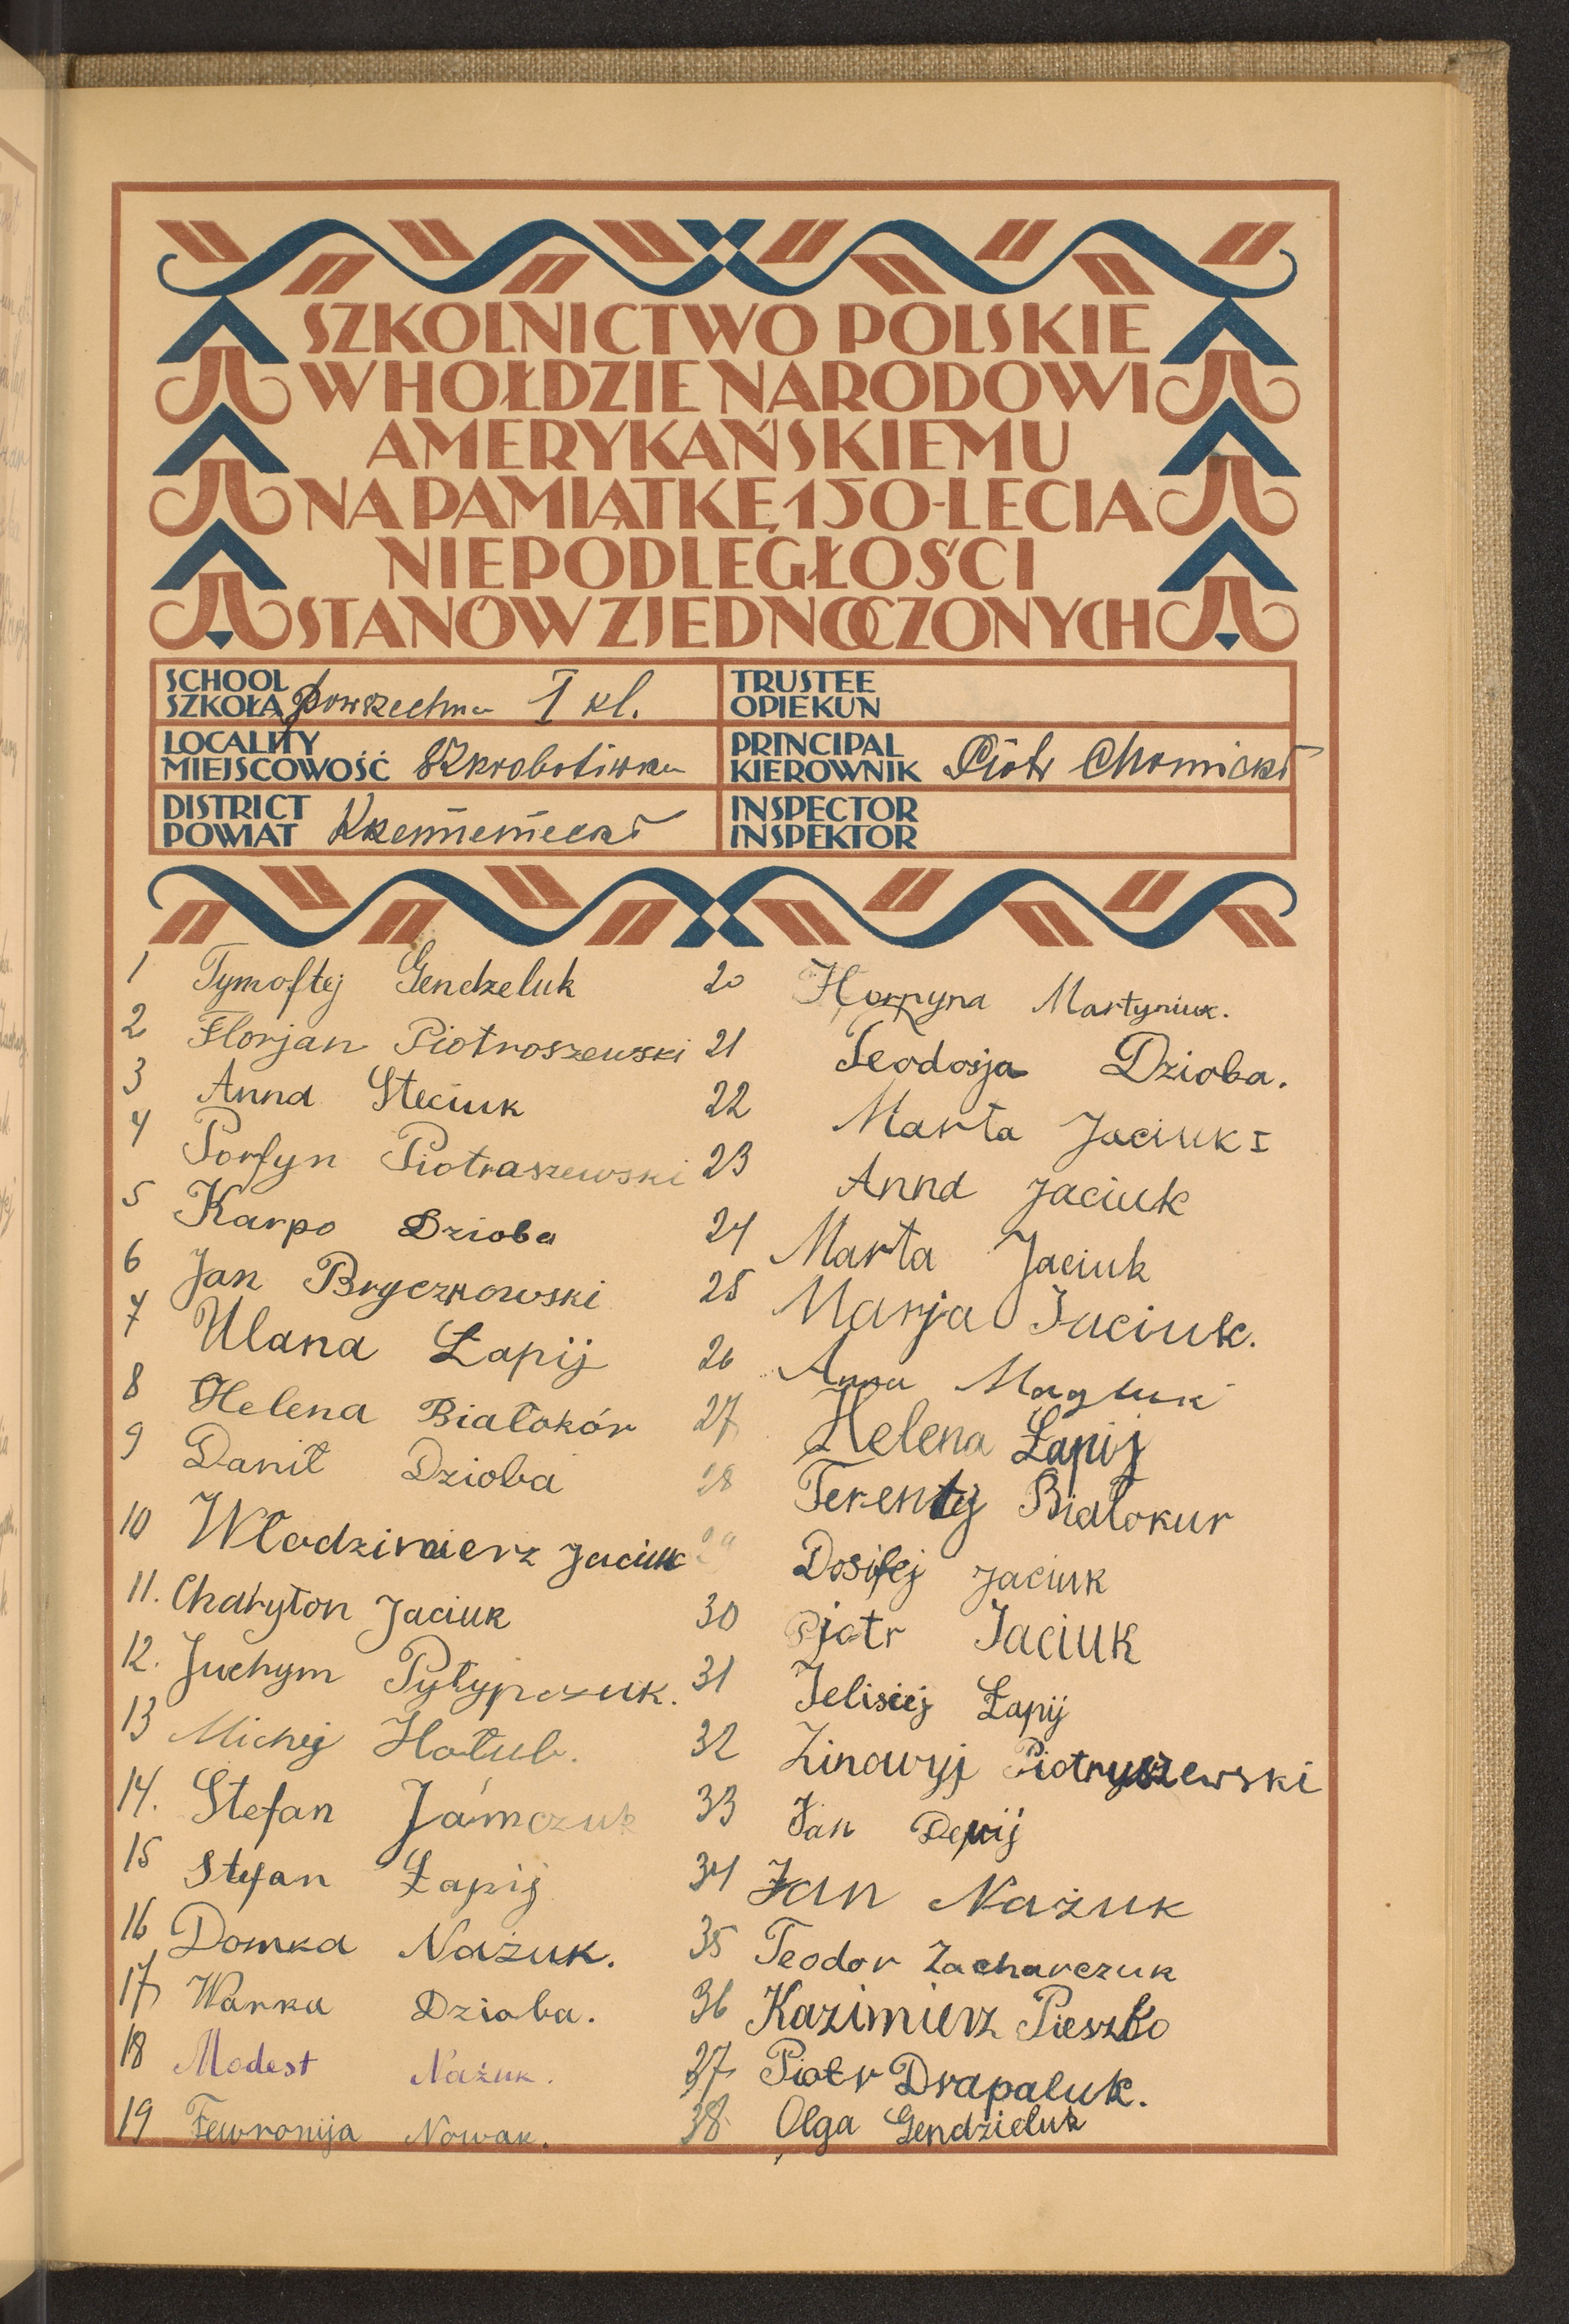 SZKOLNICTWO POLSKIE
W HOŁDZIE NARODOWI
AMERYKAŃSKIEMU
NA PAMIĄTKĘ 150-LECIA
NIEPODLEGŁOŚCI
STANÓW ZJEDNOCZONYCH
SCHOOL
SZKOŁA Powszechna I kl.
TRUSTEE
OPIEKUN
LOCALITY
MIEJSCOWOŚĆ Szkrobotiwka
PRINCIPAL
KIEROWNIK Piotr Chomicki
DISTRICT
POWIAT Krzemieniecki
INSPECTOR
INSPEKTOR
1 Tymoftej Gendzeluk
2 Florjan Piotroszewski
3 Anna Steciuk
4 Porfyn Piotraszewski
5 Karpo Dzioba
6 Jan Bryczkowski
7 Ulana Łapij
8 Helena Białokór
9 Danił Dzioba
10 Włodzimierz Jaciuk
11. Charyton Jaciuk
12. Juchym Pyłypczuk.
13 Michej Hołub.
14. Stefan Jamczuk
15 Stefan Łapij
16 Domka Nażuk.
17 Warka Dzioba.
18 Modest Nażuk.
19 Fewronija Nowak.
20 Horpyna Martyniuk.
21 Teodosja Dzioba.
22 Marta Jaciuk I
23 Anna Jaciuk
24 Marta Jaciuk
25 Marja Jaciuk.
26 Anna
27 Helena Łapij
28 Terentij Białokur
29 Dosifej Jaciuk
30 Pjotr Jaciuk
31 Jelisiej Łapij
32 Zinowyj Piotryszewski
33 Jan
34 Jan Nażuk
35 Teodor Zacharczuk
36 Kazimierz Pieszko
37 Piotr Drapaluk.
38. Olga Gendzieluk